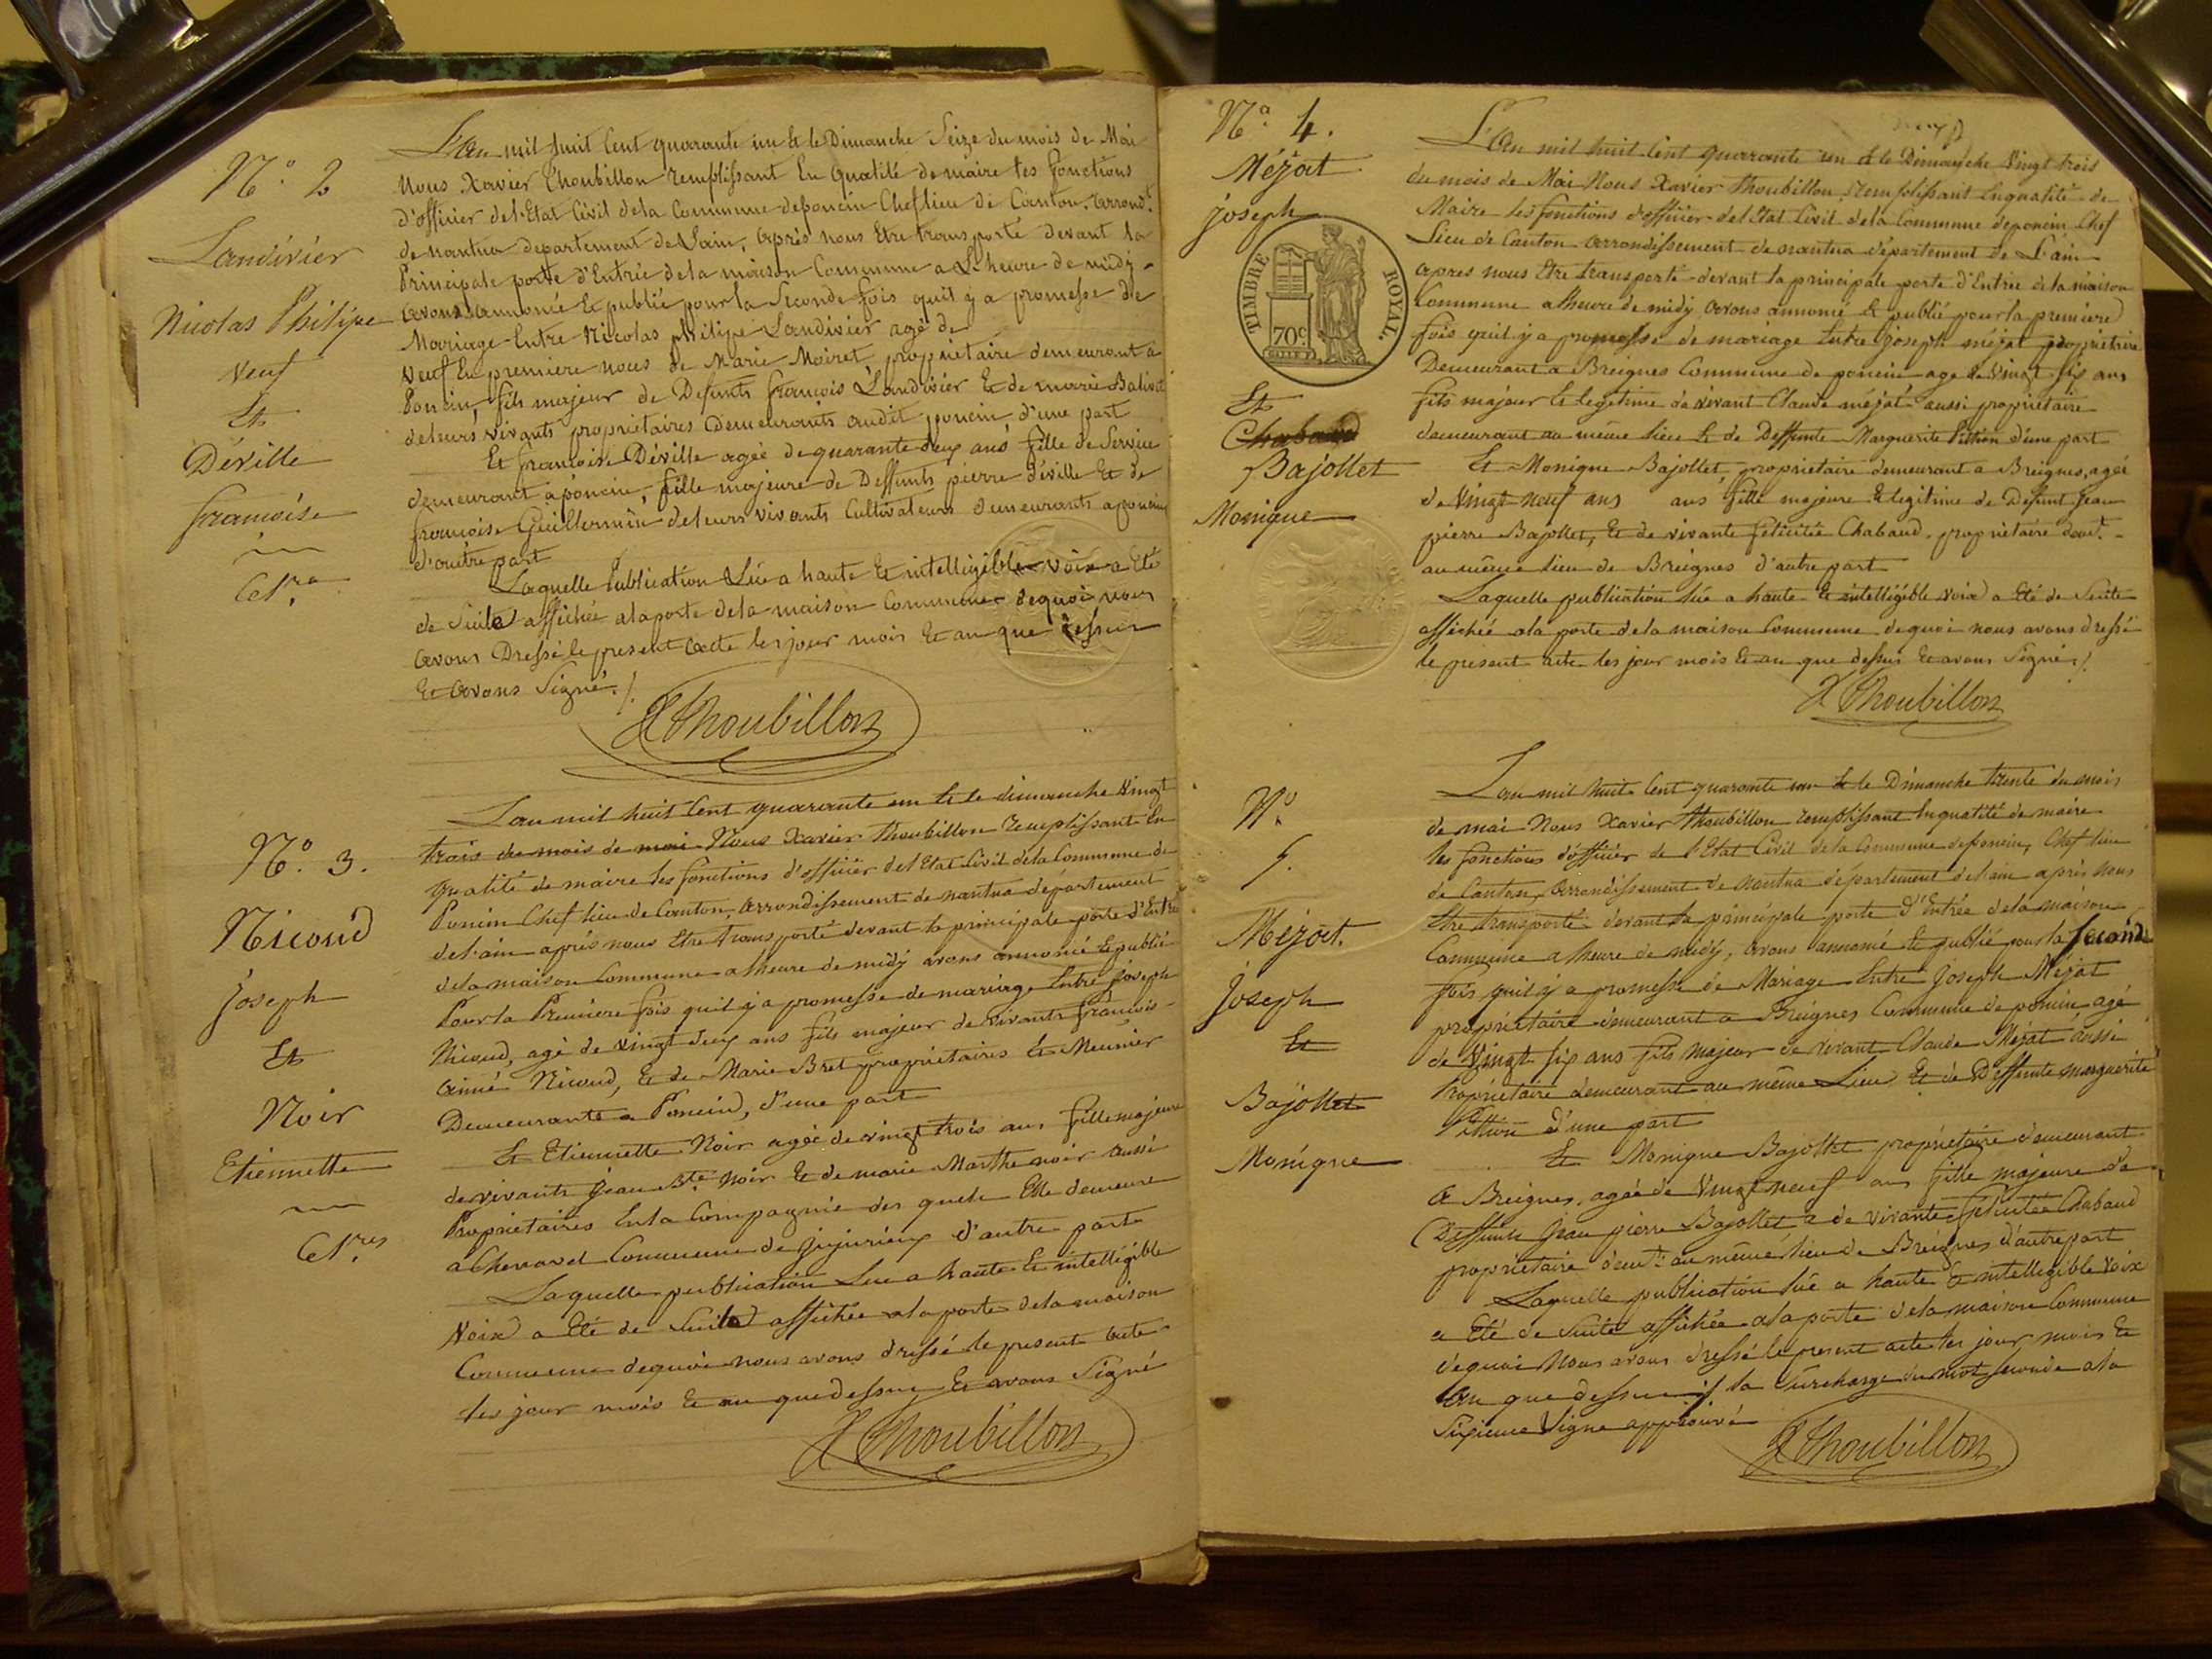 N.° 2
Landivier
Nicolas Philipe
Veuf
Et
Déville
françoise
L'an mil huit Cent quarante un Et le Dimanche Seize du mois de Mai
Nous Xavier Thoubillon remplissant En Qualité de maire les fonctions
d'officier de l'Etat Civil dela Commune deponcin Cheflieu de Canton, arrond.t
de nantua departement de Lain, après nous Etre transporté devant la
Principale porte d'Entrée dela maison Commune a L'heure de midy
avons annoncé Et publié pour la Seconde fois quil y a promesse de
Mariage Entre Nicolas philipe Landivier agé de
Veuf En premiere noces de Marie Moiret, propriétaire demeurant a
Poncin, fils majeur de Defunts françois Landivier Et de marie
deleurs vivants propriétaires Demeurants audit poncin, d'une part
Et francoise Déville agée de quarante deux ans fille de Service
demeurant aponcin, fille majeure de Deffunts pierre déville Et de
françoise Guillermin deleurs vivants Cultivateurs demeurants aponcin
d'autre part
Laquelle Publication Lue a haute Et intelligible voix a Eté
de Suite affichée ala porte dela maison Commune dequoi nous
avons Dressé le present acte les jour mois Et an que dessus
Et avons Signé ./.
X Thoubillon
N.° 3.
Nicoud
Joseph
Et
Noir
Etiennette
L'an mil huit Cent quarante un Et le dimanche Vingt
trois du mois de mai Nous Xavier Thoubillon remplissant En
qualité de maire les fonctions d'officier del'Etat Civil dela Commune de
Poncin Chef lieu de Canton, arrondissement de nantua département
del'ain après nous Etre transporté devant la principale porte d'Entrée
dela maison Commune a l'heure de midy avons annoncé Et publié
Pour la Premiere fois quil y a promesse de mariage Entre Joseph
Nicoud, agé de vingt deux ans fils majeur de vivants françois
aimé Nicoud, Et de Marie Bret propriétaires Et Meunier
Demeurants a Poncin, d'une part
Et Etiennette Noir agée de vingt trois ans fille majeure
de vivants Jean B.te Noir Et de marie Marthe noir aussi
Propriétaires En la Compagnie des quels Elle demeure
a Chenavel Commune de Jujurieux d'autre part
Laquelle publication Lue a haute Et intelligible
Voix a Eté de Suite affichée ala porte dela maison
Commune dequoi nous avons dressé le present acte
les jour mois Et an que dessus Et avons Signé
X Thoubillon
N.° 4.
Méjat
joseph
TIMBRE ROYAL.
70c
Et
Chabaud
Bajollet
Monique
L'an mil huit Cent quarante un Et le Dimanche Vingt trois
du mois de Mai Nous Xavier Thoubillon, remplissant Enqualité de
Maire les fonctions d'officier del'Etat Civil dela Commune deponcin Chef
Lieu de Canton arrondissement de nantua département de L'ain
après nous Etre transporté devant la principale porte d'Entrée dela maison
Commune a l'heure de midy avons annoncé Et publié pour la premiere
fois quil y a promesse de mariage Entre Joseph méjat propriétaire
Demeurant a Breignes Commune de poncin agé de Vingt six ans
fils majeur Et legitime de vivant Claude méjat aussi propriétaire
demeurant au même lieu Et de Deffunte Marguerite Pittion d'une part
Et Monique Bajollet, propriétaire demeurant a Breignes, agée
de Vingt neuf ans ans fille majeure Et legitime de Defunt Jean
pierre Bajollet, Et de vivante felicitée Chabaud, propriétaire demt.
au même lieu de Breignes d'autre part
Laquelle publication lue a haute Et intelligible voix a Eté de Suite
affichée ala porte dela maison Commune dequoi nous avons dressé
le présent acte les jour mois Et an que dessus Et avons Signé ./.
X Thoubillon
N.°
5.
Méjat.
Joseph
Et
Bajollet
Monique
L'an mil huit Cent quarante un Et le Dimanche trente du mois
de mai Nous Xavier Thoubillon remplissant Enqualité de maire
les fonctions d'officier de l'Etat Civil dela Commune deponcin, Chef lieu
de Canton, arrondissement de Nantua département del'ain après nous
Etre transporté devant la principale porte d'Entrée dela maison
Commune a l'heure de midy, avons annoncé Et publié pour la Seconde
fois quil y a promesse de Mariage Entre Joseph Méjat
propriétaire demeurant a Breignes Commune de poncin agé
de Vingt six ans fils Majeur de vivant Claude Méjat aussi
Propriétaire demeurant au même Lieu Et de Deffunte marguerite
Pittion d'une part
Et Monique Bajollet propriétaire demeurant
a Breignes, agée de Vingt neuf ans fille majeure de
Deffunt Jean pierre Bajollet & de vivante felicitée Chabaud
propriétaire demt. au même lieu de Breignes d'autre part
Laquelle publication lue a haute Et intelligible Voix
a Eté de Suite affichée ala porte dela maison Commune
dequoi Nous avons dressé le present acte les jour mois Et
an que dessus ./. la Surcharge du mot seconde ala
Sixieme Ligne approuvé
X Thoubillon